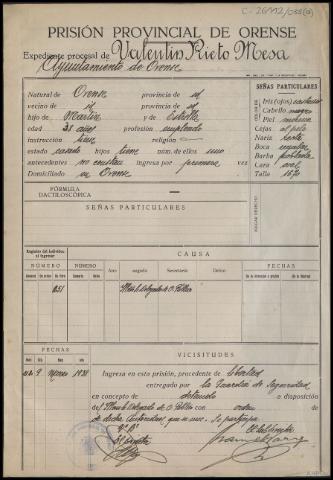 C-26112/055(a)
PRISIÓN PROVINCIAL DE ORENSE
Expediente procesal de Valentin Nieto Mesa
Ayuntamiento de Orense
Natural de Orense provincia de id
vecino de id provincia de id
hijo de Martin y de Estrella
edad 38 años profesión empleado
instrucción tiene religión
estado casado hijos tiene núm. de ellos uno
antecedentes no constan ingresa por primera vez
Domiciliado en Orense
SEÑAS PARTICULARES
Iris (ojos) castaños
Cabello negro
Piel morena
Cejas al pelo
Nariz recta
Boca regular
Barba poblada
Cara oval
Talla 1'670
FÓRMULA
DACTILOSCÓPICA
SEÑAS PARTICULARES
PULGAR DERECHO
Registro del individuo
al ingreso
CAUSA
NÚMERO
NÚMERO
FECHAS
Año
Juzgado
Secretaría
Delito
851
Ilmo. S. Delegado de O. Público
FECHAS
VICISITUDES
9 Marzo 1938
Ingresa en esta prisión, procedente de libertad
entregado por la Guardia de Seguridad
en concepto de detenido a disposición
del Ilmo. S. Delegado de O. Público con orden
de dicha Autoridad, que se une. Se participa
Vº Bº
El Director